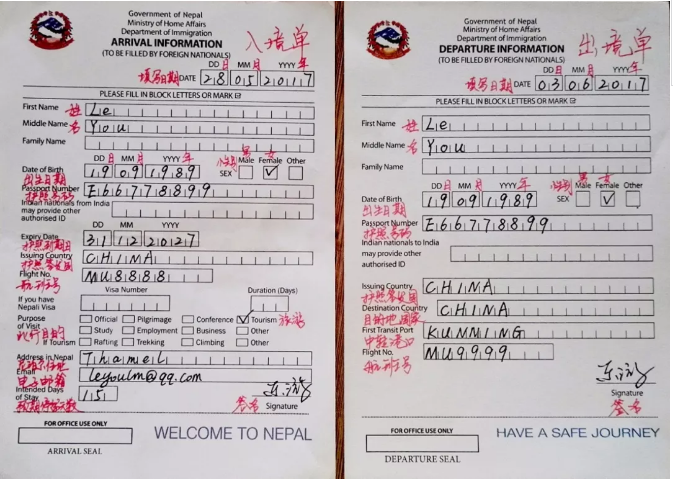 Government of Nepal
Ministry of Home Affairs
Department of Immigration
ARRIVAL INFORMATION 入境单
(TO BE FILLED BY FOREIGN NATIONALS)
DD 日 MM 月 YYYY 年
填写日期 DATE 28 05 2017
PLEASE FILL IN BLOCK LETTERS OR MARK ☑
First Name 姓 Le
Middle Name 名 You
Family Name
DD 日 MM 月 YYYY 年 性别 男 Male 女 Female Other
Date of Birth 19 09 1989 SEX ✓
出生日期
Passport Number E66778899
护照号码
Indian nationals from India
may provide other
authorised ID
Expiry Date 31 12 2027
护照到期日
Issuing Country CHINA
护照签发国
Flight No. MU8888
航班号
Visa Number Duration (Days)
If you have
Nepali Visa
Purpose of Visit Official Pilgrimage Conference ✓ Tourism 旅游
Study Employment Business Other
If Tourism Rafting Trekking Climbing Other
Address in Nepal Thamel
Email leyoulm@qq.com
电子邮箱
Intended Days
of Stay 15
签名 Signature
FOR OFFICE USE ONLY
WELCOME TO NEPAL
ARRIVAL SEAL
Government of Nepal
Ministry of Home Affairs
Department of Immigration
DEPARTURE INFORMATION 出境单
(TO BE FILLED BY FOREIGN NATIONALS)
DD 日 MM 月 YYYY 年
填写日期 DATE 03 06 2017
PLEASE FILL IN BLOCK LETTERS OR MARK ☑
First Name 姓 Le
Middle Name 名 You
Family Name
DD 日 MM 月 YYYY 年 性别 男 Male 女 Female Other
Date of Birth 19 09 1989 SEX ✓
出生日期
Passport Number E66778899
护照号码
Indian nationals to India
may provide other
authorised ID
Issuing Country CHINA
护照签发国
Destination Country CHINA
目的地国家
First Transit Port KUNMING
中转港口
Flight No. MU9999
航班号
Signature
签名
FOR OFFICE USE ONLY
HAVE A SAFE JOURNEY
DEPARTURE SEAL